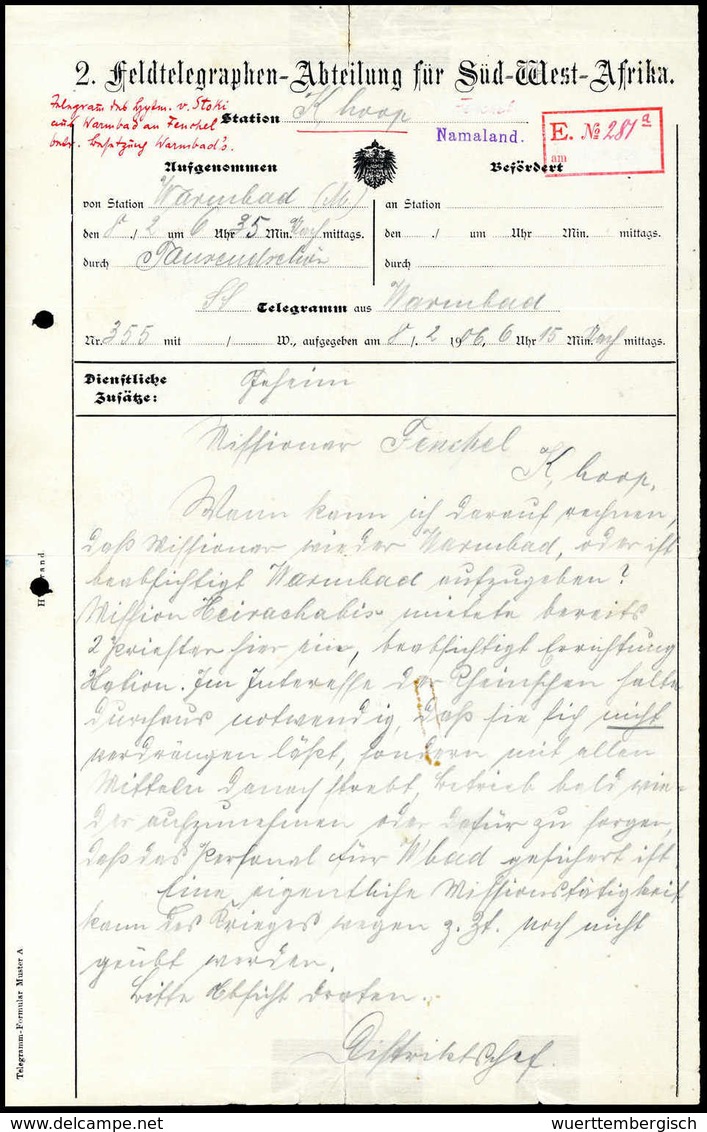 2. Feldtelegraphen-Abteilung für Süd-West-Afrika.
Telegram des Hptm. v. Stoki
aus Warmbad an Fenchel
betr. Besatzung Warmbad's.
Station K, hoop
Namaland.
E. № 281ª
am
Aufgenommen
Befördert
von Station Warmbad
an Station
den 8 ./ 2 um 6 Uhr 35 Min. Nach mittags.
den ./ um Uhr Min. mittags.
durch Tausendschön
durch
SS Telegramm aus Warmbad
Nr. 355 mit / W., aufgegeben am 8 /. 2 1906, 6 Uhr 15 Min. Nach mittags.
Dienstliche
Zusätze:
Geheim
Missionar Fenchel
K, hoop.
Wann kann ich darauf rechnen,
daß Missionar wieder Warmbad, oder ist
beabsichtigt Warmbad aufzugeben?
Mission Heirachabis mietete bereits
2 Priester hier ein, beabsichtigt Errichtung
Station. Im Interesse der Rheinischen halte
durchaus notwendig, daß sie sich nicht
verdrängen läßt, sondern mit allen
Mitteln danach strebt, Betrieb bald wie-
der aufzunehmen oder dafür zu sorgen,
daß das Personal für W'bad gesichert ist
Eine eigentliche Missionstätigkeit
kann des Krieges wegen z. Zt. noch nicht
geübt werden.
Bitte Absicht draten.
Distriktschef.
Telegramm-Formular Muster A
wuerttembergisch